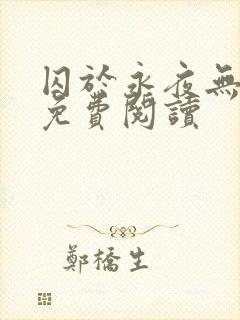 囚於永夜無
免費閱讀
鄭橋生